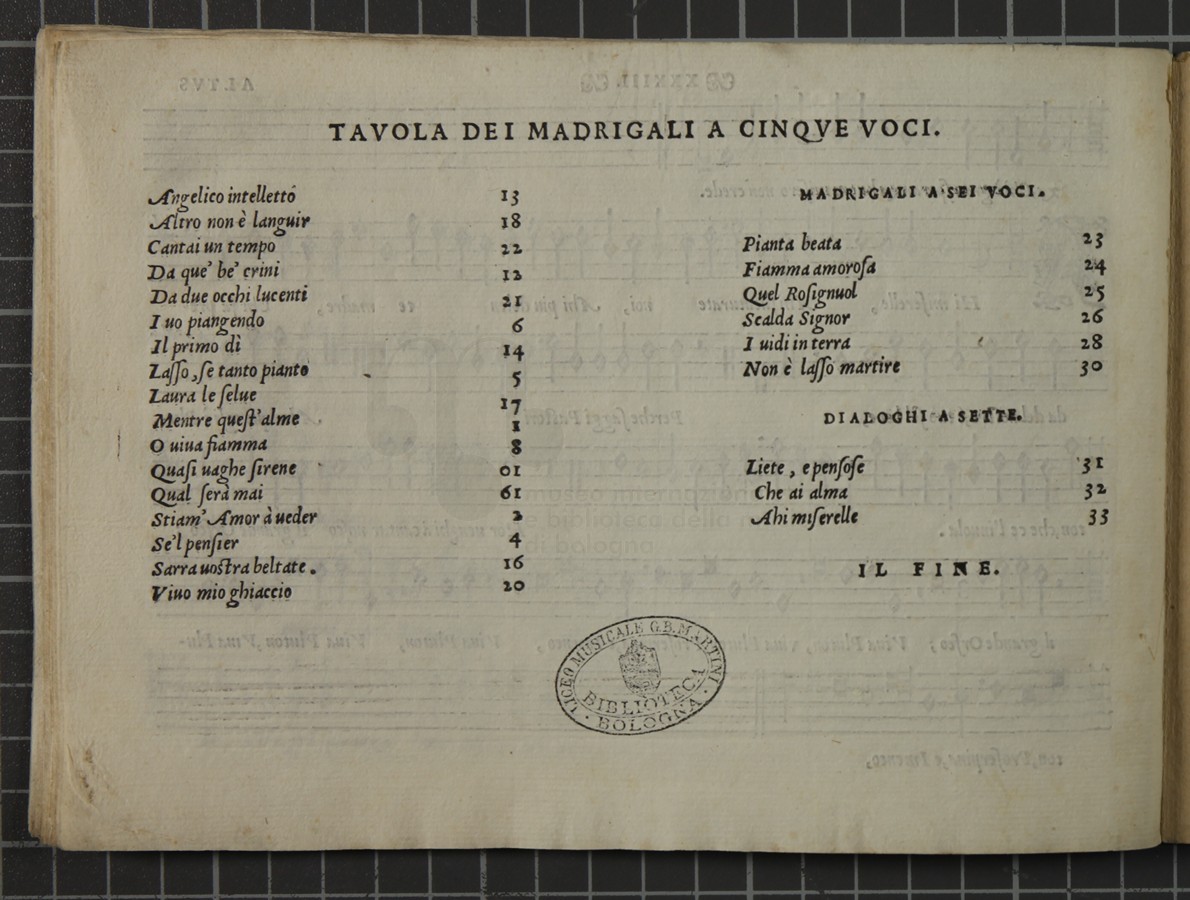 TAVOLA DEI MADRIGALI A CINQVE VOCI.
Angelico intelletto 13
Altro non è languir 18
Cantai un tempo 22
Da que' be' crini 12
Da due occhi lucenti 21
I uo piangendo 6
Il primo dì 14
Laſſo, ſe tanto pianto 5
Laura le ſelue 17
Mentre queſt'alme 1
O uiua fiamma 8
Quaſi uaghe ſirene 01
Qual ſerà mai 61
Stiam' Amor à ueder 2
Se'l penſier 4
Sarra uoſtra beltate. 16
Viuo mio ghiaccio 20
MADRIGALI A SEI VOCI.
Pianta beata 23
Fiamma amoroſa 24
Quel Roſignuol 25
Scalda Signor 26
I uidi in terra 28
Non è laſſo martire 30
DIALOGHI A SETTE.
Liete, e penſoſe 31
Che ai alma 32
Ahi miſerelle 33
IL FINE.
LICEO MUSICALE G.B. MARTINI
BIBLIOTECA
· BOLOGNA ·
museo internazionale
e biblioteca della
di bologna
ALTVS
XXXIII.